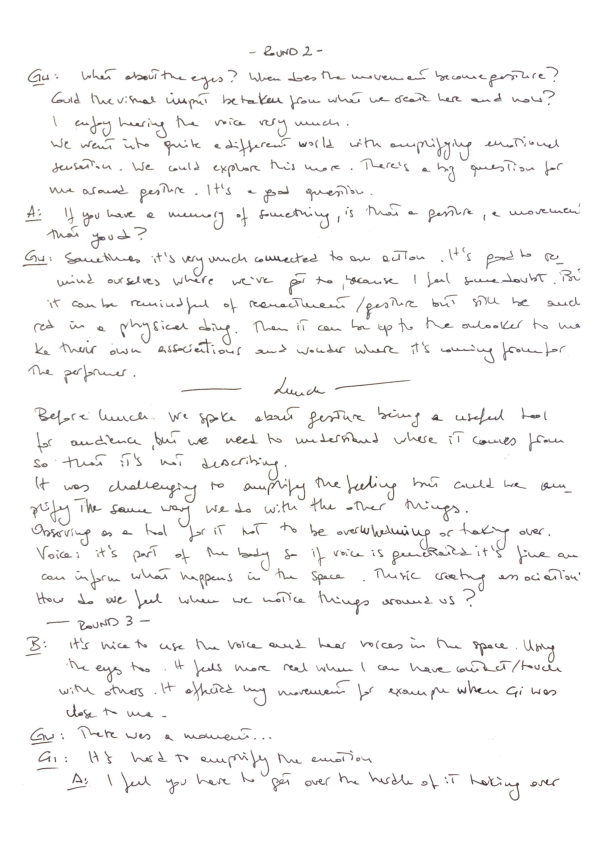 - ROUND 2 -
Gu: What about the eyes? When does the movement become gesture?
Could the visual input be taken from what we create here and now?
I enjoy hearing the voice very much.
We went into quite a different world with amplifying emotional
sensation. We could explore this more. There's a big question for
me around gesture. It's a good question.
A: If you have a memory of something, is that a gesture, a movement
that you do?
Gu: Sometimes it's very much connected to an action. It's good to re_
mind ourselves where we've got to, because I feel some doubt. But
it can be remindful of reenactment/gesture but still be anch
red in a physical doing. Then it can be up to the onlooker to ma
ke their own associations and wonder where it's coming from for
the performer.
Lunch
Before lunch we spoke about gesture being a useful tool
for audience, but we need to understand where it comes from
so that it's not describing.
It was challenging to amplify the feeling but could we am_
plify the same way we do with the other things.
Observing as a tool for it not to be overwhelming or taking over.
Voice: it's part of the body so if voice is generated it's fine an
can inform what happens in the space. Music creating association
How do we feel when we notice things around us?
— ROUND 3 -
B: it's nice to use the voice and hear voices in the space. Using
the eyes too. It feels more real when I can have contact/touch
with others. It affected my movement for example when Gi was
close to me -
Gu: There was a moment...
Gi: It's hard to amplify the emotion
A: I feel you have to get over the hurdle of it taking over